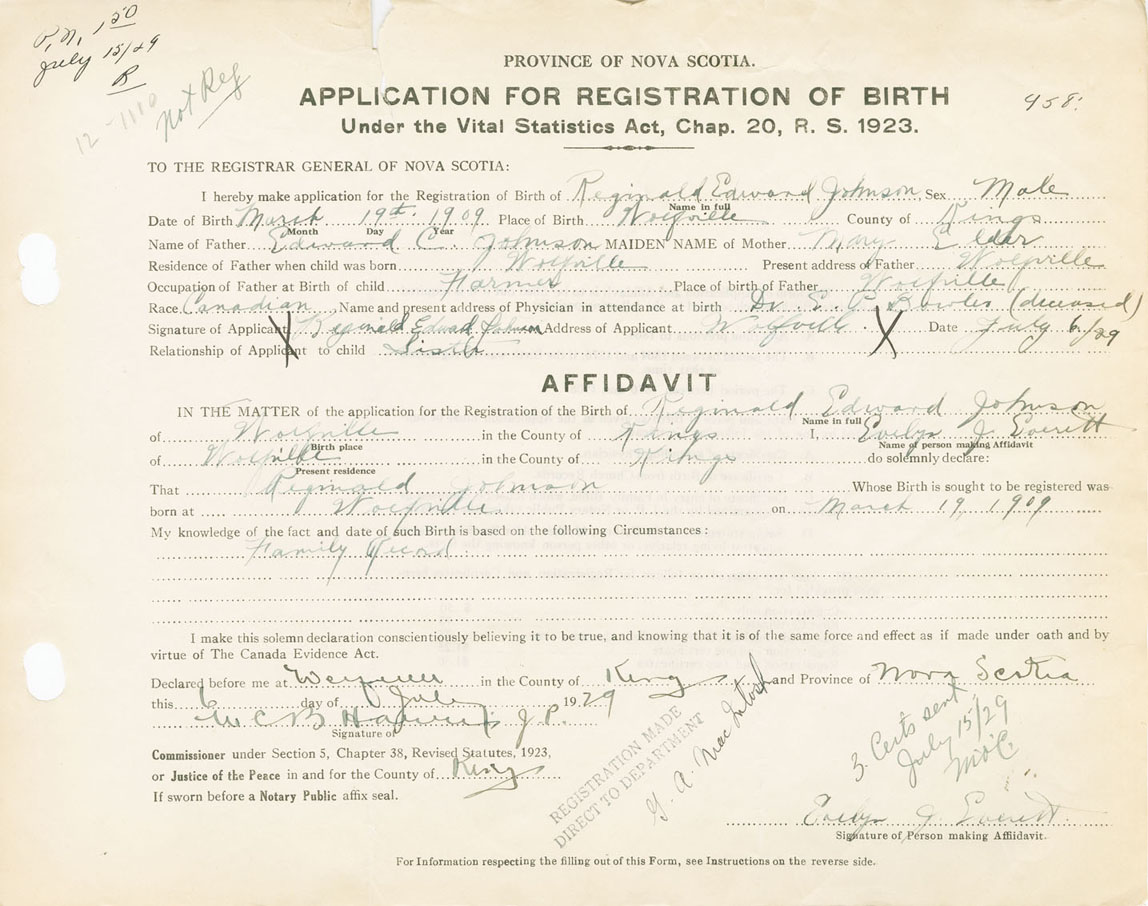 P.N. 1 50
July 15/29
R
12-1110
Not Reg
PROVINCE OF NOVA SCOTIA.
APPLICATION FOR REGISTRATION OF BIRTH
958.
Under the Vital Statistics Act, Chap. 20, R. S. 1923.
TO THE REGISTRAR GENERAL OF NOVA SCOTIA:
I hereby make application for the Registration of Birth of Reginald Edward Johnson Sex Male
Name in full
Date of Birth March 19th. 1909 Place of Birth Wolfville County of Kings
Month Day Year
Name of Father Edward C. Johnson MAIDEN NAME of Mother Mary Elder
Residence of Father when child was born Wolfville Present address of Father Wolfville
Occupation of Father at Birth of child Farmer Place of birth of Father Wolfville
Race Canadian Name and present address of Physician in attendance at birth Dr. E. P. Bowles (deceased)
Signature of Applicant X Reginald Edward Johnson Address of Applicant Wolfville X Date July 6/29
Relationship of Applicant to child Sister
AFFIDAVIT
IN THE MATTER of the application for the Registration of the Birth of Reginald Edward Johnson
Name in full
of Wolfville in the County of Kings I, Evelyn J. Everett
Birth place Name of person making Affidavit
of Wolfville in the County of Kings do solemnly declare:
Present residence
That Reginald Johnson Whose Birth is sought to be registered was
born at Wolfville on March 19, 1909
My knowledge of the fact and date of such Birth is based on the following Circumstances:
Family Record
I make this solemn declaration conscientiously believing it to be true, and knowing that it is of the same force and effect as if made under oath and by
virtue of The Canada Evidence Act.
Declared before me at in the County of Kings and Province of Nova Scotia
this 6 day of July 1929
J.P.
Signature of
Commissioner under Section 5, Chapter 38, Revised Statutes, 1923,
or Justice of the Peace in and for the County of Kings
If sworn before a Notary Public affix seal.
REGISTRATION MADE
DIRECT TO DEPARTMENT
G. A. MacIntosh
3 Certs sent
July 15/29
McC.
Evelyn J. Everett
Signature of Person making Affidavit.
For Information respecting the filling out of this Form, see Instructions on the reverse side.